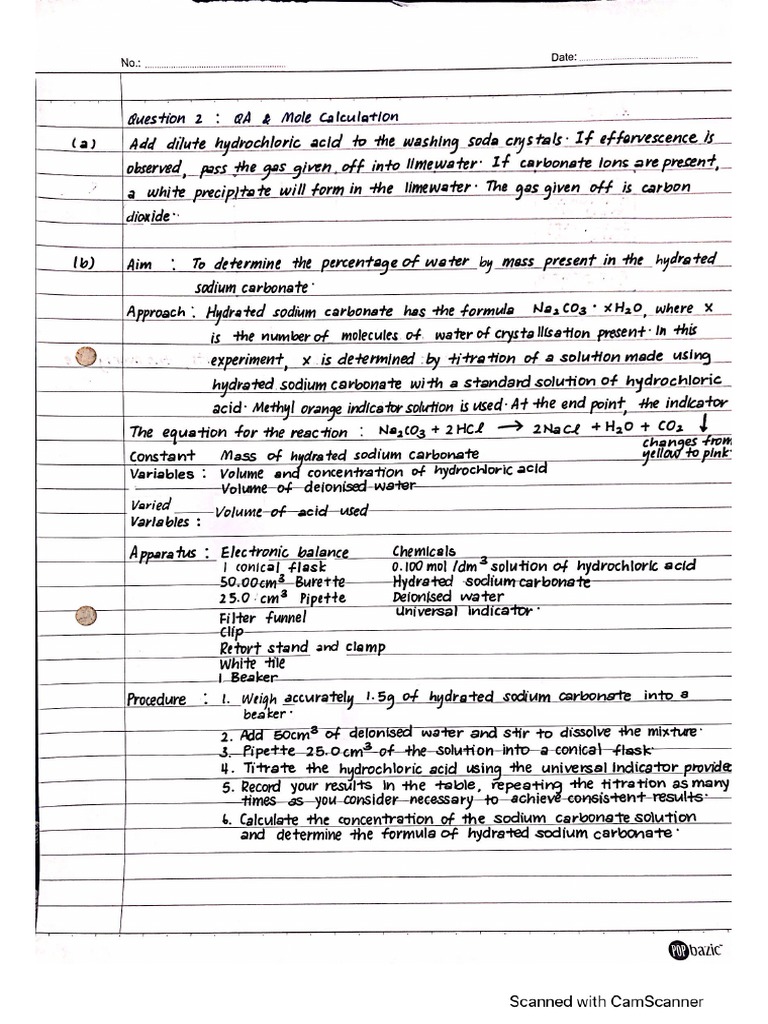 No.: Date:
Question 2 : QA & Mole Calculation
(a) Add dilute hydrochloric acid to the washing soda crystals. If effervescence is
observed, pass the gas given off into limewater. If carbonate ions are present,
a white precipitate will form in the limewater. The gas given off is carbon
dioxide.
(b) Aim : To determine the percentage of water by mass present in the hydrated
sodium carbonate.
Approach : Hydrated sodium carbonate has the formula Na₂CO₃ · xH₂O, where x
is the number of molecules of water of crystallisation present. In this
experiment, x is determined by titration of a solution made using
hydrated sodium carbonate with a standard solution of hydrochloric
acid. Methyl orange indicator solution is used. At the end point, the indicator
The equation for the reaction : Na₂CO₃ + 2HCl → 2NaCl + H₂O + CO₂ ↓
changes from
yellow to pink.
Constant Mass of hydrated sodium carbonate
Variables : Volume and concentration of hydrochloric acid
Volume of deionised water
Varied
Variables : Volume of acid used
Apparatus : Electronic balance Chemicals
1 conical flask 0.100 mol/dm³ solution of hydrochloric acid
50.00cm³ Burette Hydrated sodium carbonate
25.0 cm³ Pipette Deionised water
Filter funnel Universal indicator.
Clip
Retort stand and clamp
White tile
1 Beaker
Procedure : 1. Weigh accurately 1.5g of hydrated sodium carbonate into a
beaker.
2. Add 50cm³ of deionised water and stir to dissolve the mixture.
3. Pipette 25.0cm³ of the solution into a conical flask.
4. Titrate the hydrochloric acid using the universal indicator provide
5. Record your results in the table, repeating the titration as many
times as you consider necessary to achieve consistent results.
6. Calculate the concentration of the sodium carbonate solution
and determine the formula of hydrated sodium carbonate.
POP bazic
Scanned with CamScanner